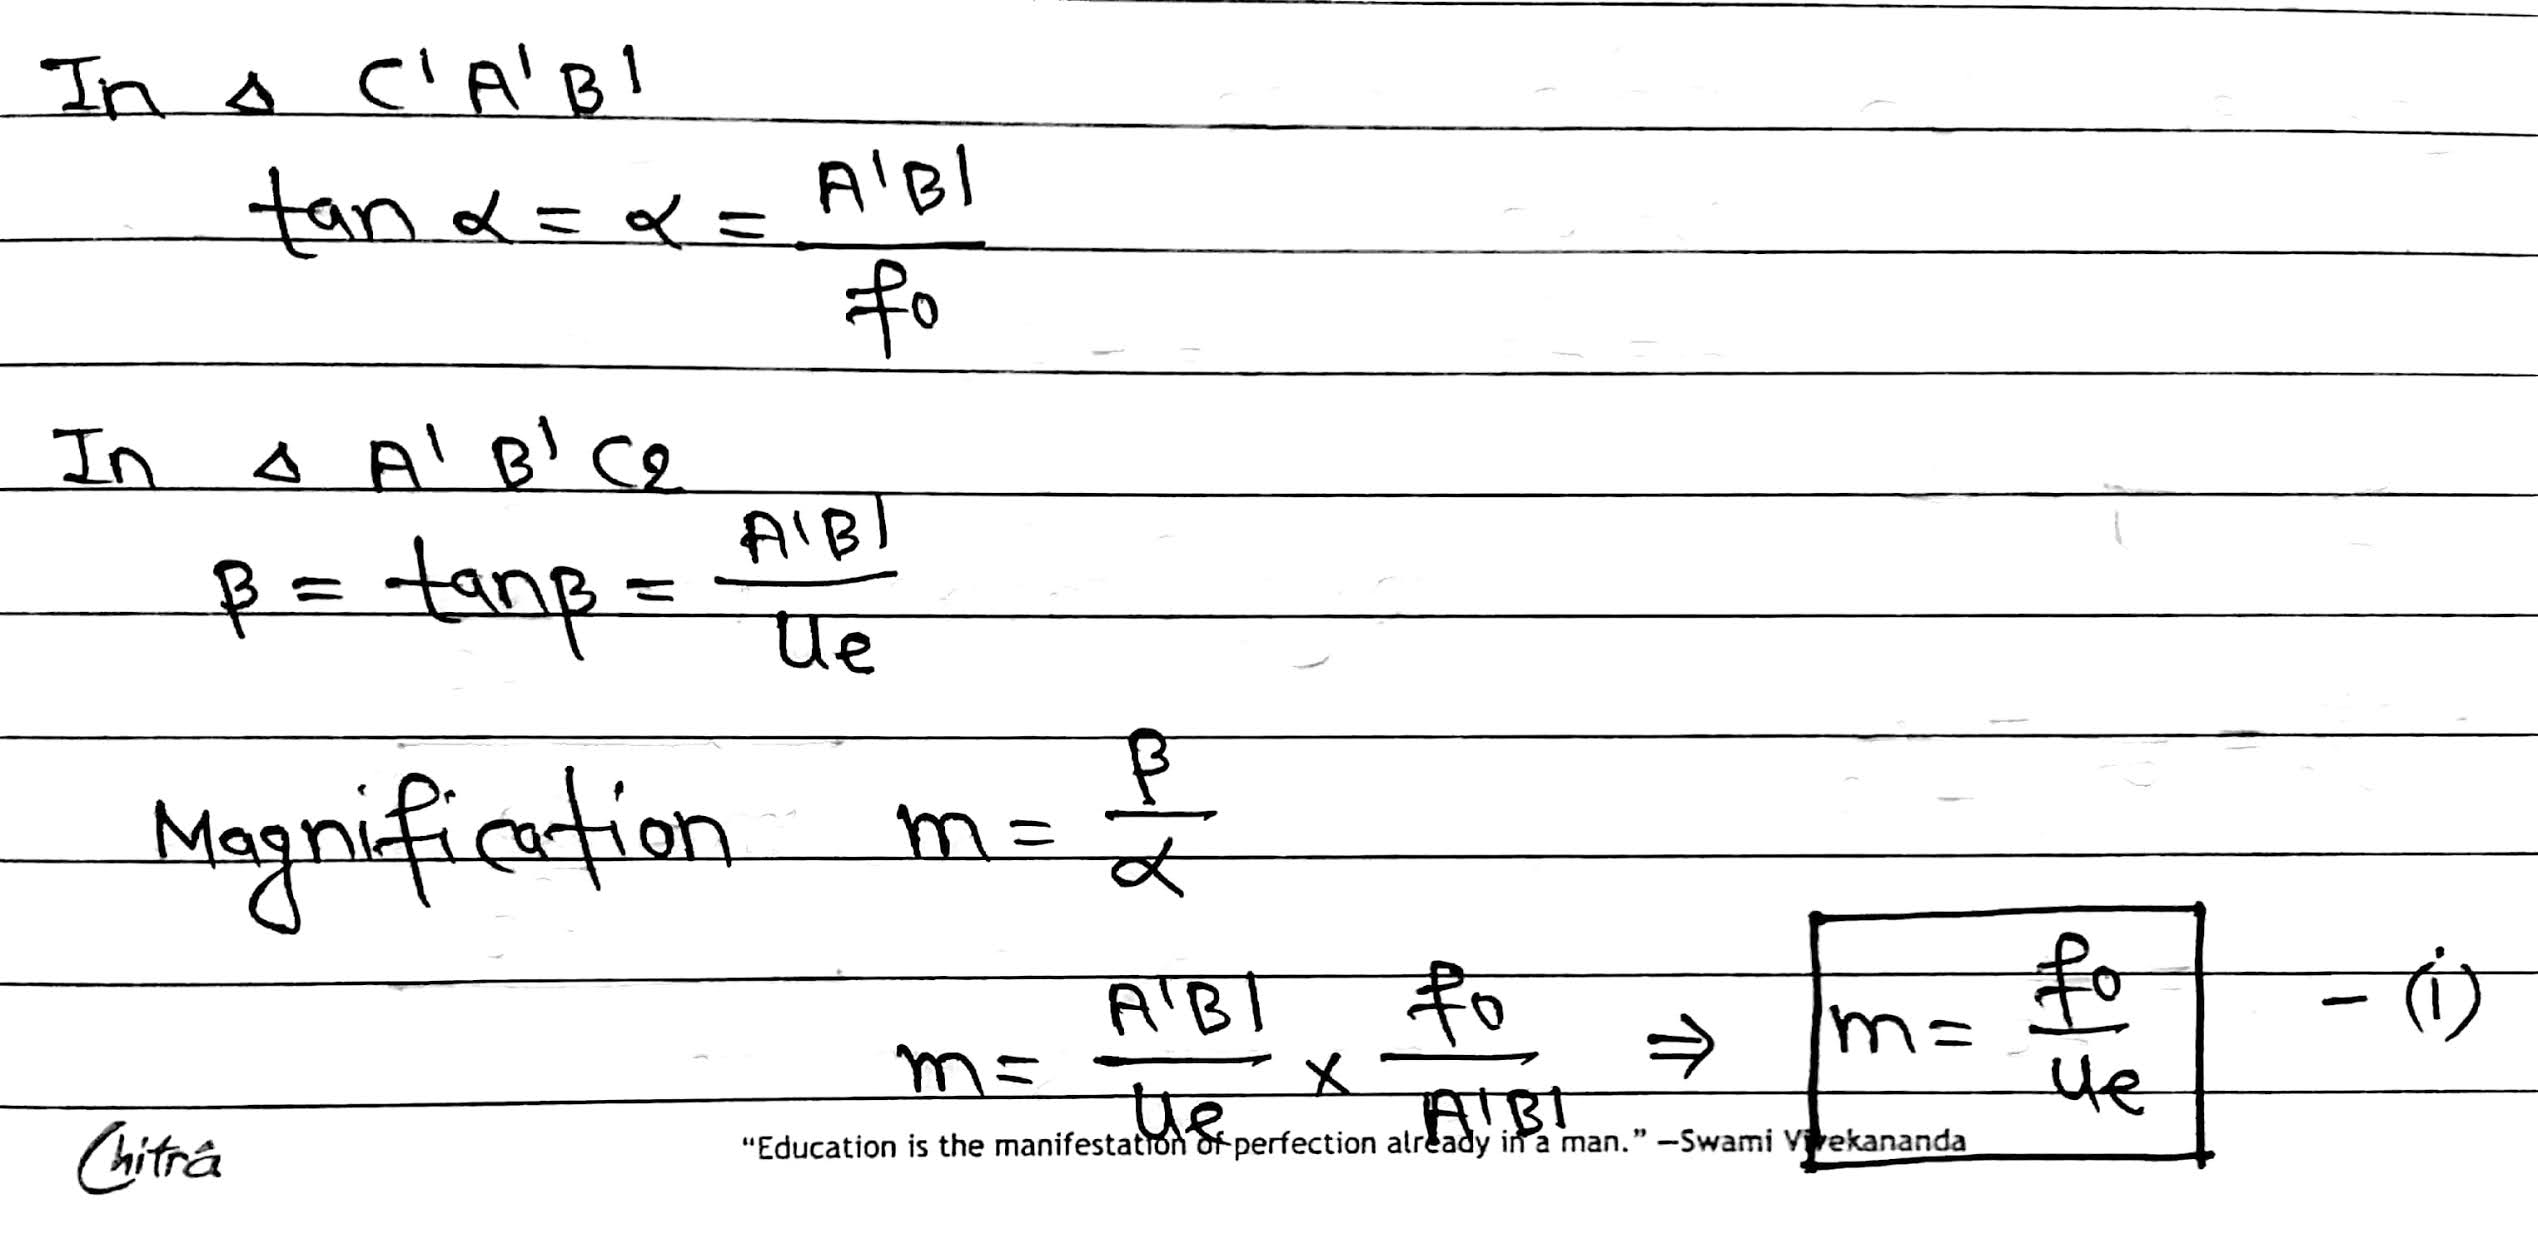 In Δ C'A'B'
tan α = α = A'B' / fo
In Δ A'B'C2
β = tanβ = A'B' / ue
Magnification m = β / α
m = A'B' / ue × fo / A'B' ⇒ m = fo / ue - (i)
Chitrâ "Education is the manifestation of perfection already in a man." —Swami Vivekananda